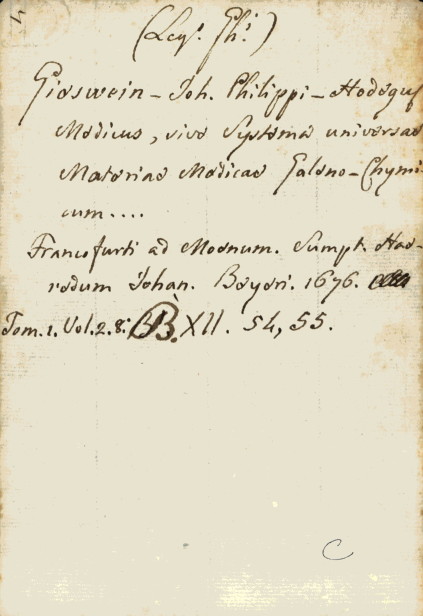 (Leg. Gh.)
Gieswein – Joh. Philippi – Hodegus
Medicus, sive Systema universae
Materiae Medicae Galeno-Chymi-
cum....
Francofurti ad Moenum. Sumpt. Hae-
redum Johan. Beyeri. 1676.
Tom. 1. Vol. 2. 8. B. XII. 54, 55.
C